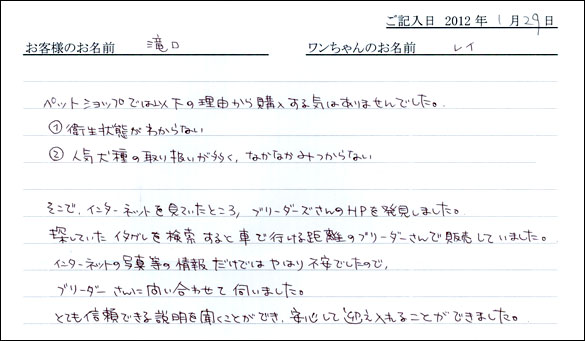 ご記入日 2012年 1月29日
お客様のお名前 滝口 ワンちゃんのお名前 レイ
ペットショップでは以下の理由から購入する気はありませんでした。
①衛生状態がわからない
②人気犬種の取り扱いが多く、なかなかみつからない
そこで、インターネットを見ていたところ、ブリーダーズさんのHPを発見しました。
探していたイタグレを検索すると車で行ける距離のブリーダーさんで販売していました。
インターネットの写真等の情報だけではやはり不安でしたので、
ブリーダーさんに問い合わせて伺いました。
とても信頼できる説明を聞くことができ、安心して迎え入れることができました。